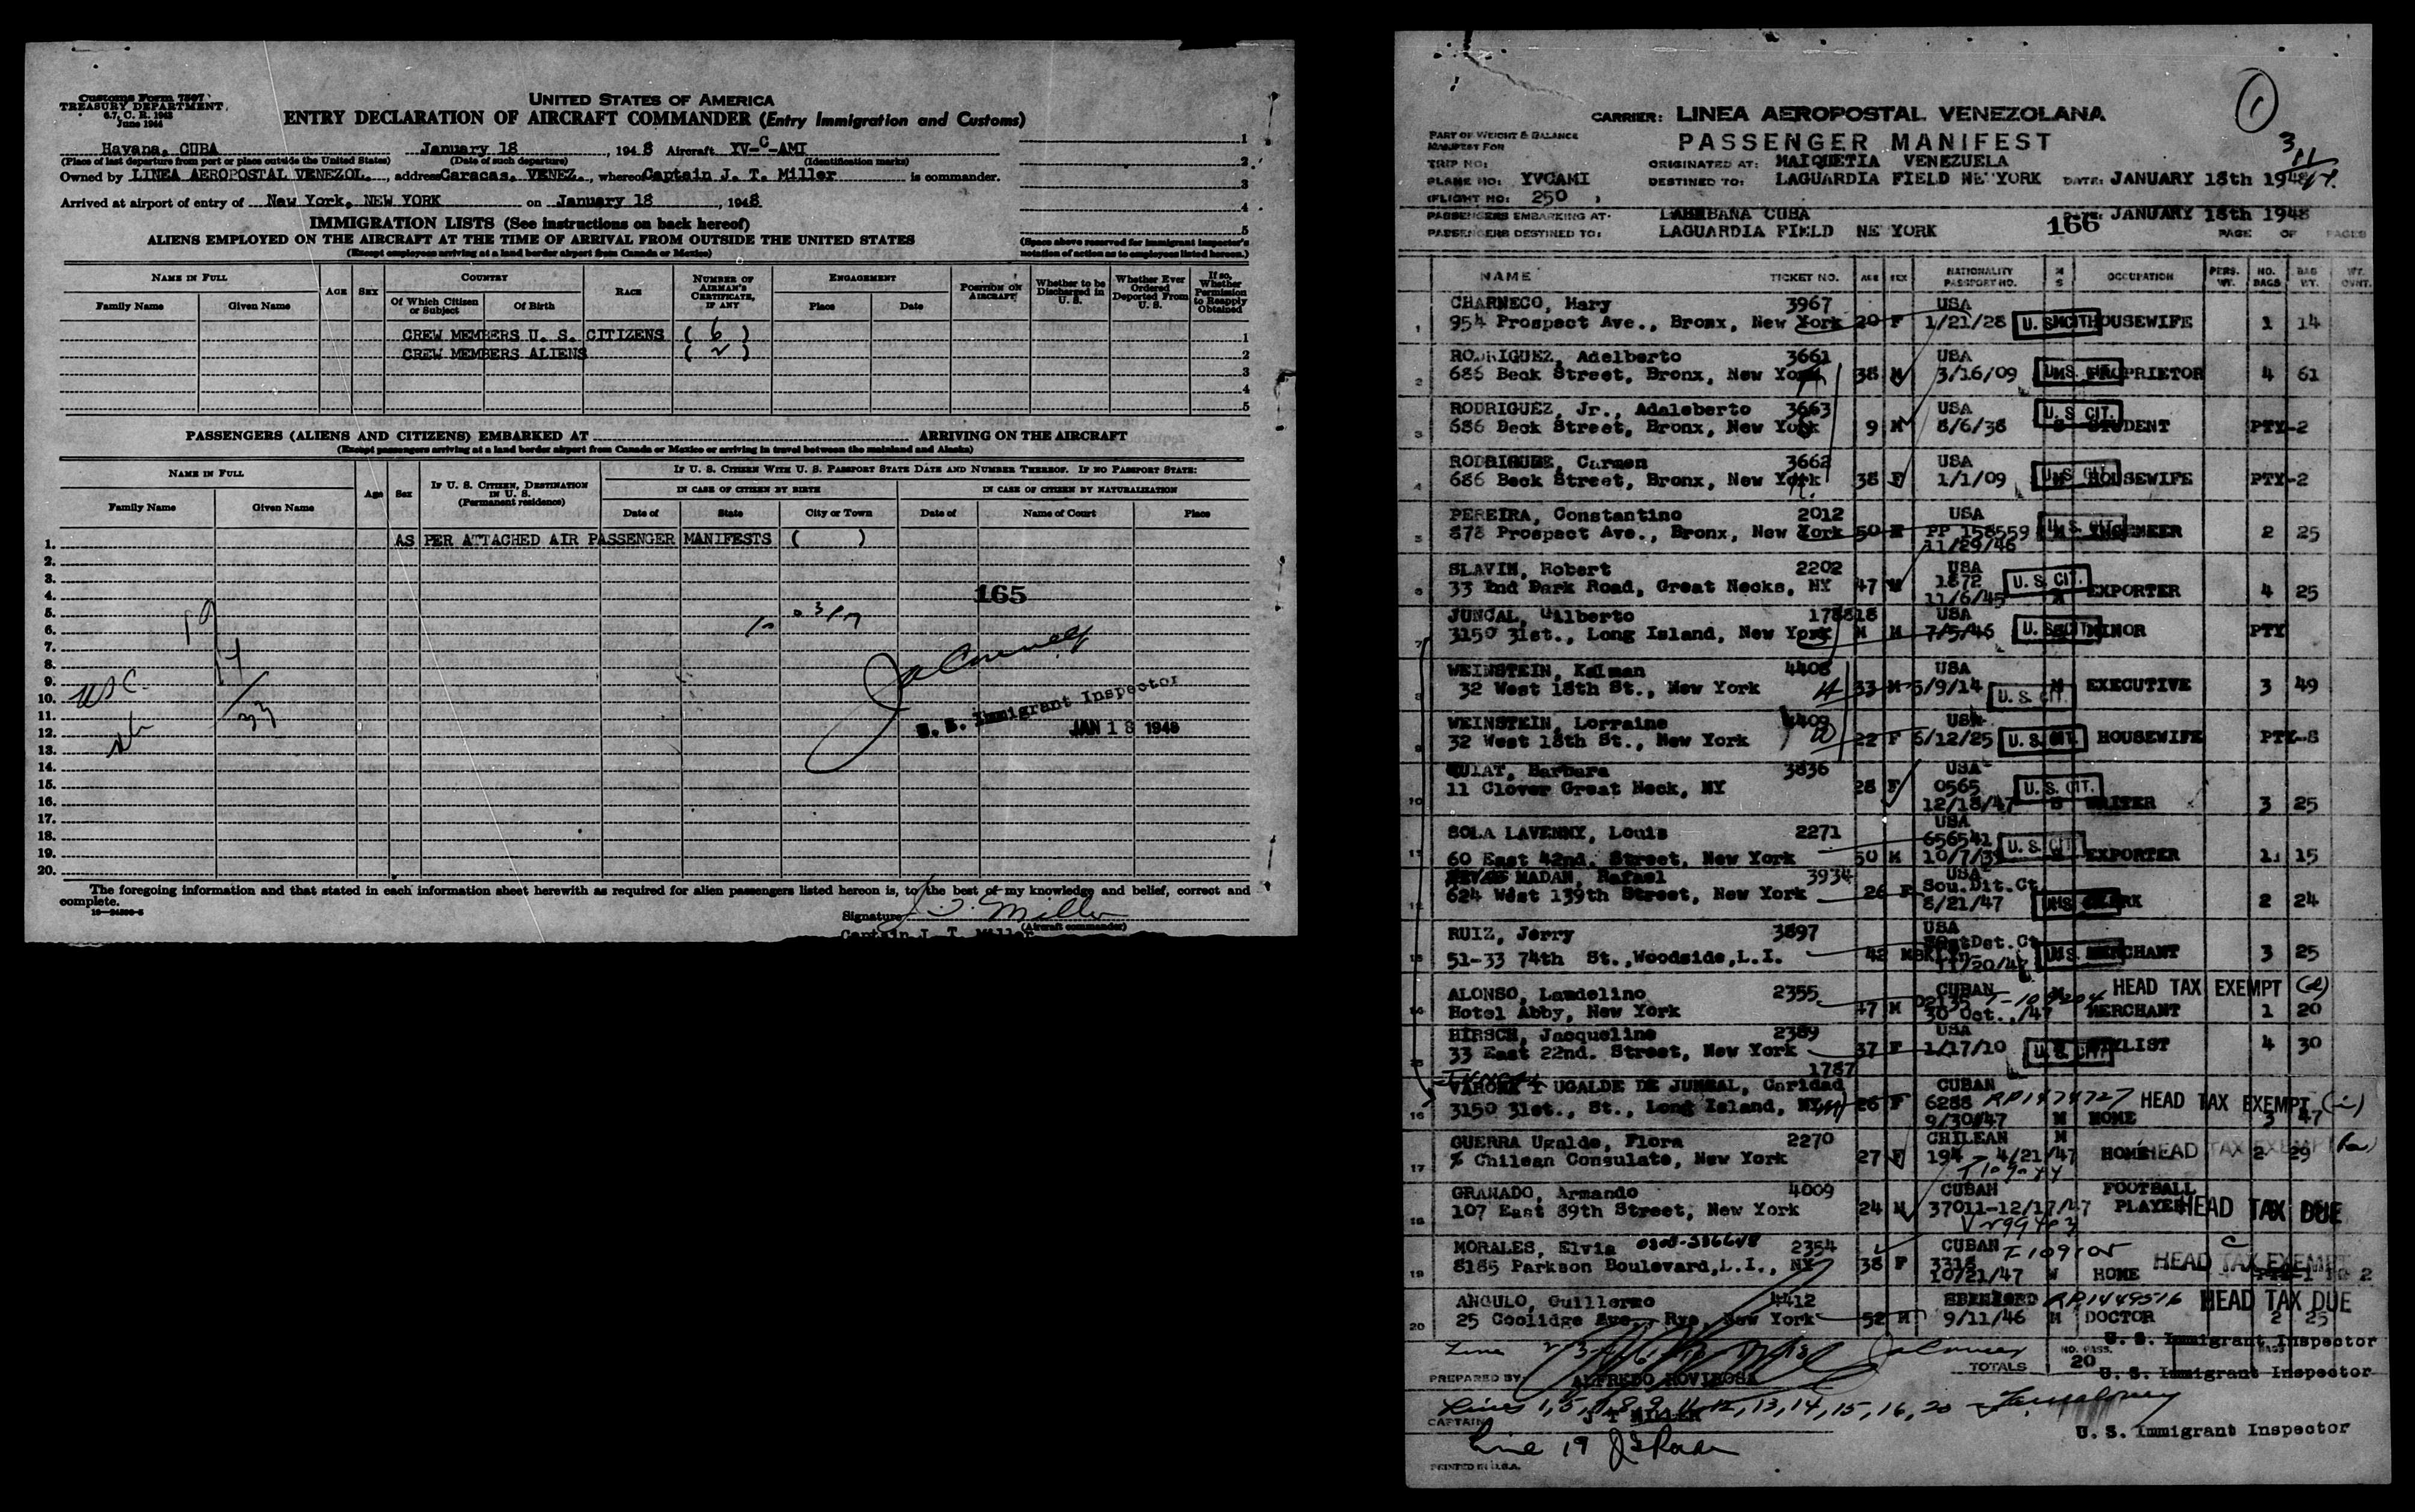 Customs Form 7507
TREASURY DEPARTMENT
6.7, C. R. 1943
June 1944
UNITED STATES OF AMERICA
ENTRY DECLARATION OF AIRCRAFT COMMANDER (Entry Immigration and Customs)
Havana, CUBA January 18, 1948 Aircraft YV-C-AMI
(Place of last departure from port or place outside the United States) (Date of such departure) (Identification marks)
Owned by LINEA AEROPOSTAL VENEZOL., address Caracas, VENEZ., whereof Captain J. T. Miller is commander.
Arrived at airport of entry of New York, NEW YORK on January 18, 1948
1
2
3
4
5
(Space above reserved for immigrant inspector's notation of action as to employees listed hereon.)
IMMIGRATION LISTS (See instructions on back hereof)
ALIENS EMPLOYED ON THE AIRCRAFT AT THE TIME OF ARRIVAL FROM OUTSIDE THE UNITED STATES
(Except employees arriving at a land border airport from Canada or Mexico)
NAME IN FULL AGE SEX COUNTRY RACE NUMBER OF AIRMAN'S CERTIFICATE, IF ANY ENGAGEMENT POSITION ON AIRCRAFT Whether to be Discharged in U. S. Whether Ever Ordered Deported From U. S. If so, Whether Permission to Reapply Obtained
Family Name Given Name Of Which Citizen or Subject Of Birth Place Date
CREW MEMBERS U. S. CITIZENS ( 6 ) 1
CREW MEMBERS ALIENS ( 2 ) 2
3
4
5
PASSENGERS (ALIENS AND CITIZENS) EMBARKED AT ARRIVING ON THE AIRCRAFT
(Except passengers arriving at a land border airport from Canada or Mexico or arriving in travel between the mainland and Alaska)
NAME IN FULL Age Sex IF U. S. CITIZEN, DESTINATION IN U. S. (Permanent residence) IF U. S. CITIZEN WITH U. S. PASSPORT STATE DATE AND NUMBER THEREOF. IF NO PASSPORT STATE:
IN CASE OF CITIZEN BY BIRTH IN CASE OF CITIZEN BY NATURALIZATION
Family Name Given Name Date of State City or Town Date of Name of Court Place
1. AS PER ATTACHED AIR PASSENGER MANIFESTS ( )
2.
3.
4. 165
5.
6.
7.
8.
9.
10. USC
11.
12. U. S. Immigrant Inspector
JAN 18 1948
13.
14.
15.
16.
17.
18.
19.
20.
The foregoing information and that stated in each information sheet herewith as required for alien passengers listed hereon is, to the best of my knowledge and belief, correct and complete.
Signature J. T. Miller
(Aircraft commander)
Captain J. T. Miller
1
CARRIER: LINEA AEROPOSTAL VENEZOLANA
PART OF WEIGHT & BALANCE MANIFEST FOR
PASSENGER MANIFEST
TRIP NO: ORIGINATED AT: MAIQUETIA VENEZUELA
PLANE NO: YVCAMI DESTINED TO: LAGUARDIA FIELD NEW YORK DATE: JANUARY 18th 1948
FLIGHT NO: 250
PASSENGERS EMBARKING AT: LAHABANA CUBA DATE: JANUARY 18th 1948
PASSENGERS DESTINED TO: LAGUARDIA FIELD NEW YORK 166 PAGE OF PAGES
NAME TICKET NO. AGE SEX NATIONALITY PASSPORT NO. M S OCCUPATION PERS. WT. NO. BAGS BAG WT. WT. OVNT.
CHARNECO, Mary 3967 USA
1 954 Prospect Ave., Bronx, New York 20 F 1/21/28 U. S. CIT HOUSEWIFE 1 14
RODRIGUEZ, Adelberto 3661 USA
2 686 Beck Street, Bronx, New York 38 M 3/16/09 U. S. CIT. PROPRIETOR 4 61
RODRIGUEZ, Jr., Adaleberto 3663 USA U. S. CIT.
3 686 Beck Street, Bronx, New York 9 M 8/6/38 S STUDENT PTY-2
RODRIGUEZ, Carmen 3662 USA
4 686 Beck Street, Bronx, New York 38 F 1/1/09 U. S. CIT. HOUSEWIFE PTY-2
PEREIRA, Constantino 2012 USA
5 878 Prospect Ave., Bronx, New York 50 M PP 158559 U. S. CIT. 2 25
11/29/46
SLAVIN, Robert 2202 USA
6 33 Dark Road, Great Necks, NY 47 M 1872 U. S. CIT. EXPORTER 4 25
11/6/45
JUNCAL, Gilberto 178818 USA
7 3150 31st., Long Island, New York M M 7/5/46 U. S. CIT. MINOR PTY
WEINSTEIN, Kalman 4408 USA
8 32 West 18th St., New York 33 M 5/9/14 U. S. CIT. M EXECUTIVE 3 49
WEINSTEIN, Lorraine 4409 USA
9 32 West 18th St., New York 22 F 6/12/25 U. S. CIT. HOUSEWIFE PTY-8
QUIAT, Barbara 3836 USA
10 11 Clover Great Neck, NY 28 F 0565 U. S. CIT. WRITER 3 25
12/18/47
SOLA LAVENNY, Louis 2271 USA
11 60 East 42nd. Street, New York 50 M 656541 U. S. CIT. EXPORTER 1 15
10/7/39
MADAN, Rafael 3934 USA
12 624 West 139th Street, New York 26 Sou. Dit. Ct U. S. CLERK 2 24
8/21/47
RUIZ, Jerry 3897 USA
13 51-33 74th St., Woodside, L.I. 42 M East Dst. Ct U. S. MERCHANT 3 25
ALONSO, Laudelino 2355 CUBAN M HEAD TAX EXEMPT
14 Hotel Abby, New York 47 M 30 Oct., /47 MERCHANT 1 20
HIRSCH, Jacqueline 2389 USA
15 33 East 22nd. Street, New York 37 F 1/17/10 U. S. CIT. STYLIST 4 30
UGALDE DE JUNCAL, Caridad 1787 CUBAN
16 3150 31st., St., Long Island, NY 26 F 6288 RP1474727 HEAD TAX EXEMPT
9/30/47 M HOME 3 47
GUERRA Ugalde, Flora 2270 CHILEAN M
17 % Chilean Consulate, New York 27 F 194 - 4/21/47 HOME HEAD TAX EXEMPT 2 29
GRANADO, Armando 4009 CUBAN FOOTBALL
18 107 East 89th Street, New York 24 M 37011-12/17/47 PLAYER HEAD TAX DUE
MORALES, Elvia 2354 CUBAN
19 8185 Parkson Boulevard, L.I., NY 38 F 3318 HEAD TAX EXEMPT
10/21/47 HOME
ANGULO, Guillermo 4412 RP1449516 HEAD TAX DUE
20 25 Coolidge Ave., Rye, New York 52 M 9/11/46 M DOCTOR 2 25
U. S. Immigrant Inspector
TOTALS NO. PASS. 20 BAGS
U. S. Immigrant Inspector
PREPARED BY: ALFREDO ROVIROSA
Lines 1, 5, 7, 8, 9, 11, 12, 13, 14, 15, 16, 20
CAPTAIN J T MILLER
U. S. Immigrant Inspector
Line 19
PRINTED IN U.S.A.